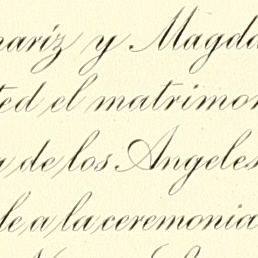 nariz y Magda
ted el matrimon
a de los Angeles
de a la ceremonia